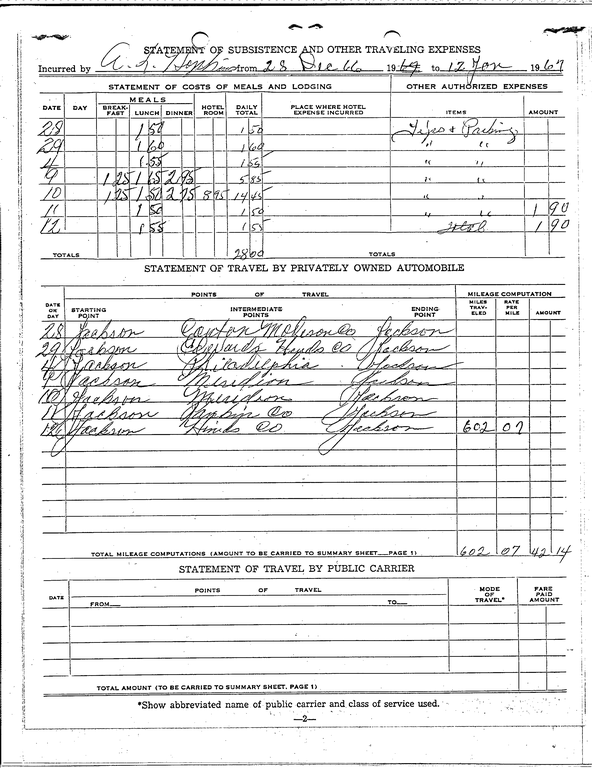 STATEMENT OF SUBSISTENCE AND OTHER TRAVELING EXPENSES
Incurred by A. L. Hopkins from 28 Dec 66 19 to 12 Jan 1967
STATEMENT OF COSTS OF MEALS AND LODGING OTHER AUTHORIZED EXPENSES
DATE DAY MEALS BREAK-FAST LUNCH DINNER HOTEL ROOM DAILY TOTAL PLACE WHERE HOTEL EXPENSE INCURRED ITEMS AMOUNT
28 1 50 1 50 Tips & Parking
29 1 60 1 60 " "
4 1 55 1 55 " "
9 1 25 1 65 2 95 5 85 " "
10 1 25 1 50 2 75 8 95 14 45 " "
11 1 50 1 50 " " 1 90
12 1 55 1 55 total 1 90
TOTALS 28 00 TOTALS
STATEMENT OF TRAVEL BY PRIVATELY OWNED AUTOMOBILE
POINTS OF TRAVEL MILEAGE COMPUTATION
DATE OR DAY STARTING POINT INTERMEDIATE POINTS ENDING POINT MILES TRAV-ELED RATE PER MILE AMOUNT
28 Jackson Canton Madison Co Jackson
29 Jackson Edwards Hinds Co Jackson
4 Jackson Philadelphia Jackson
9 Jackson Meridian Jackson
10 Jackson Meridian Jackson
11 Jackson Rankin Co Jackson
12 Jackson Hinds Co Jackson 602 07
TOTAL MILEAGE COMPUTATIONS (AMOUNT TO BE CARRIED TO SUMMARY SHEET—PAGE 1) 602 07 42 14
STATEMENT OF TRAVEL BY PUBLIC CARRIER
DATE POINTS OF TRAVEL MODE OF TRAVEL* FARE PAID AMOUNT
FROM— TO—
TOTAL AMOUNT (TO BE CARRIED TO SUMMARY SHEET. PAGE 1)
*Show abbreviated name of public carrier and class of service used.
—2—